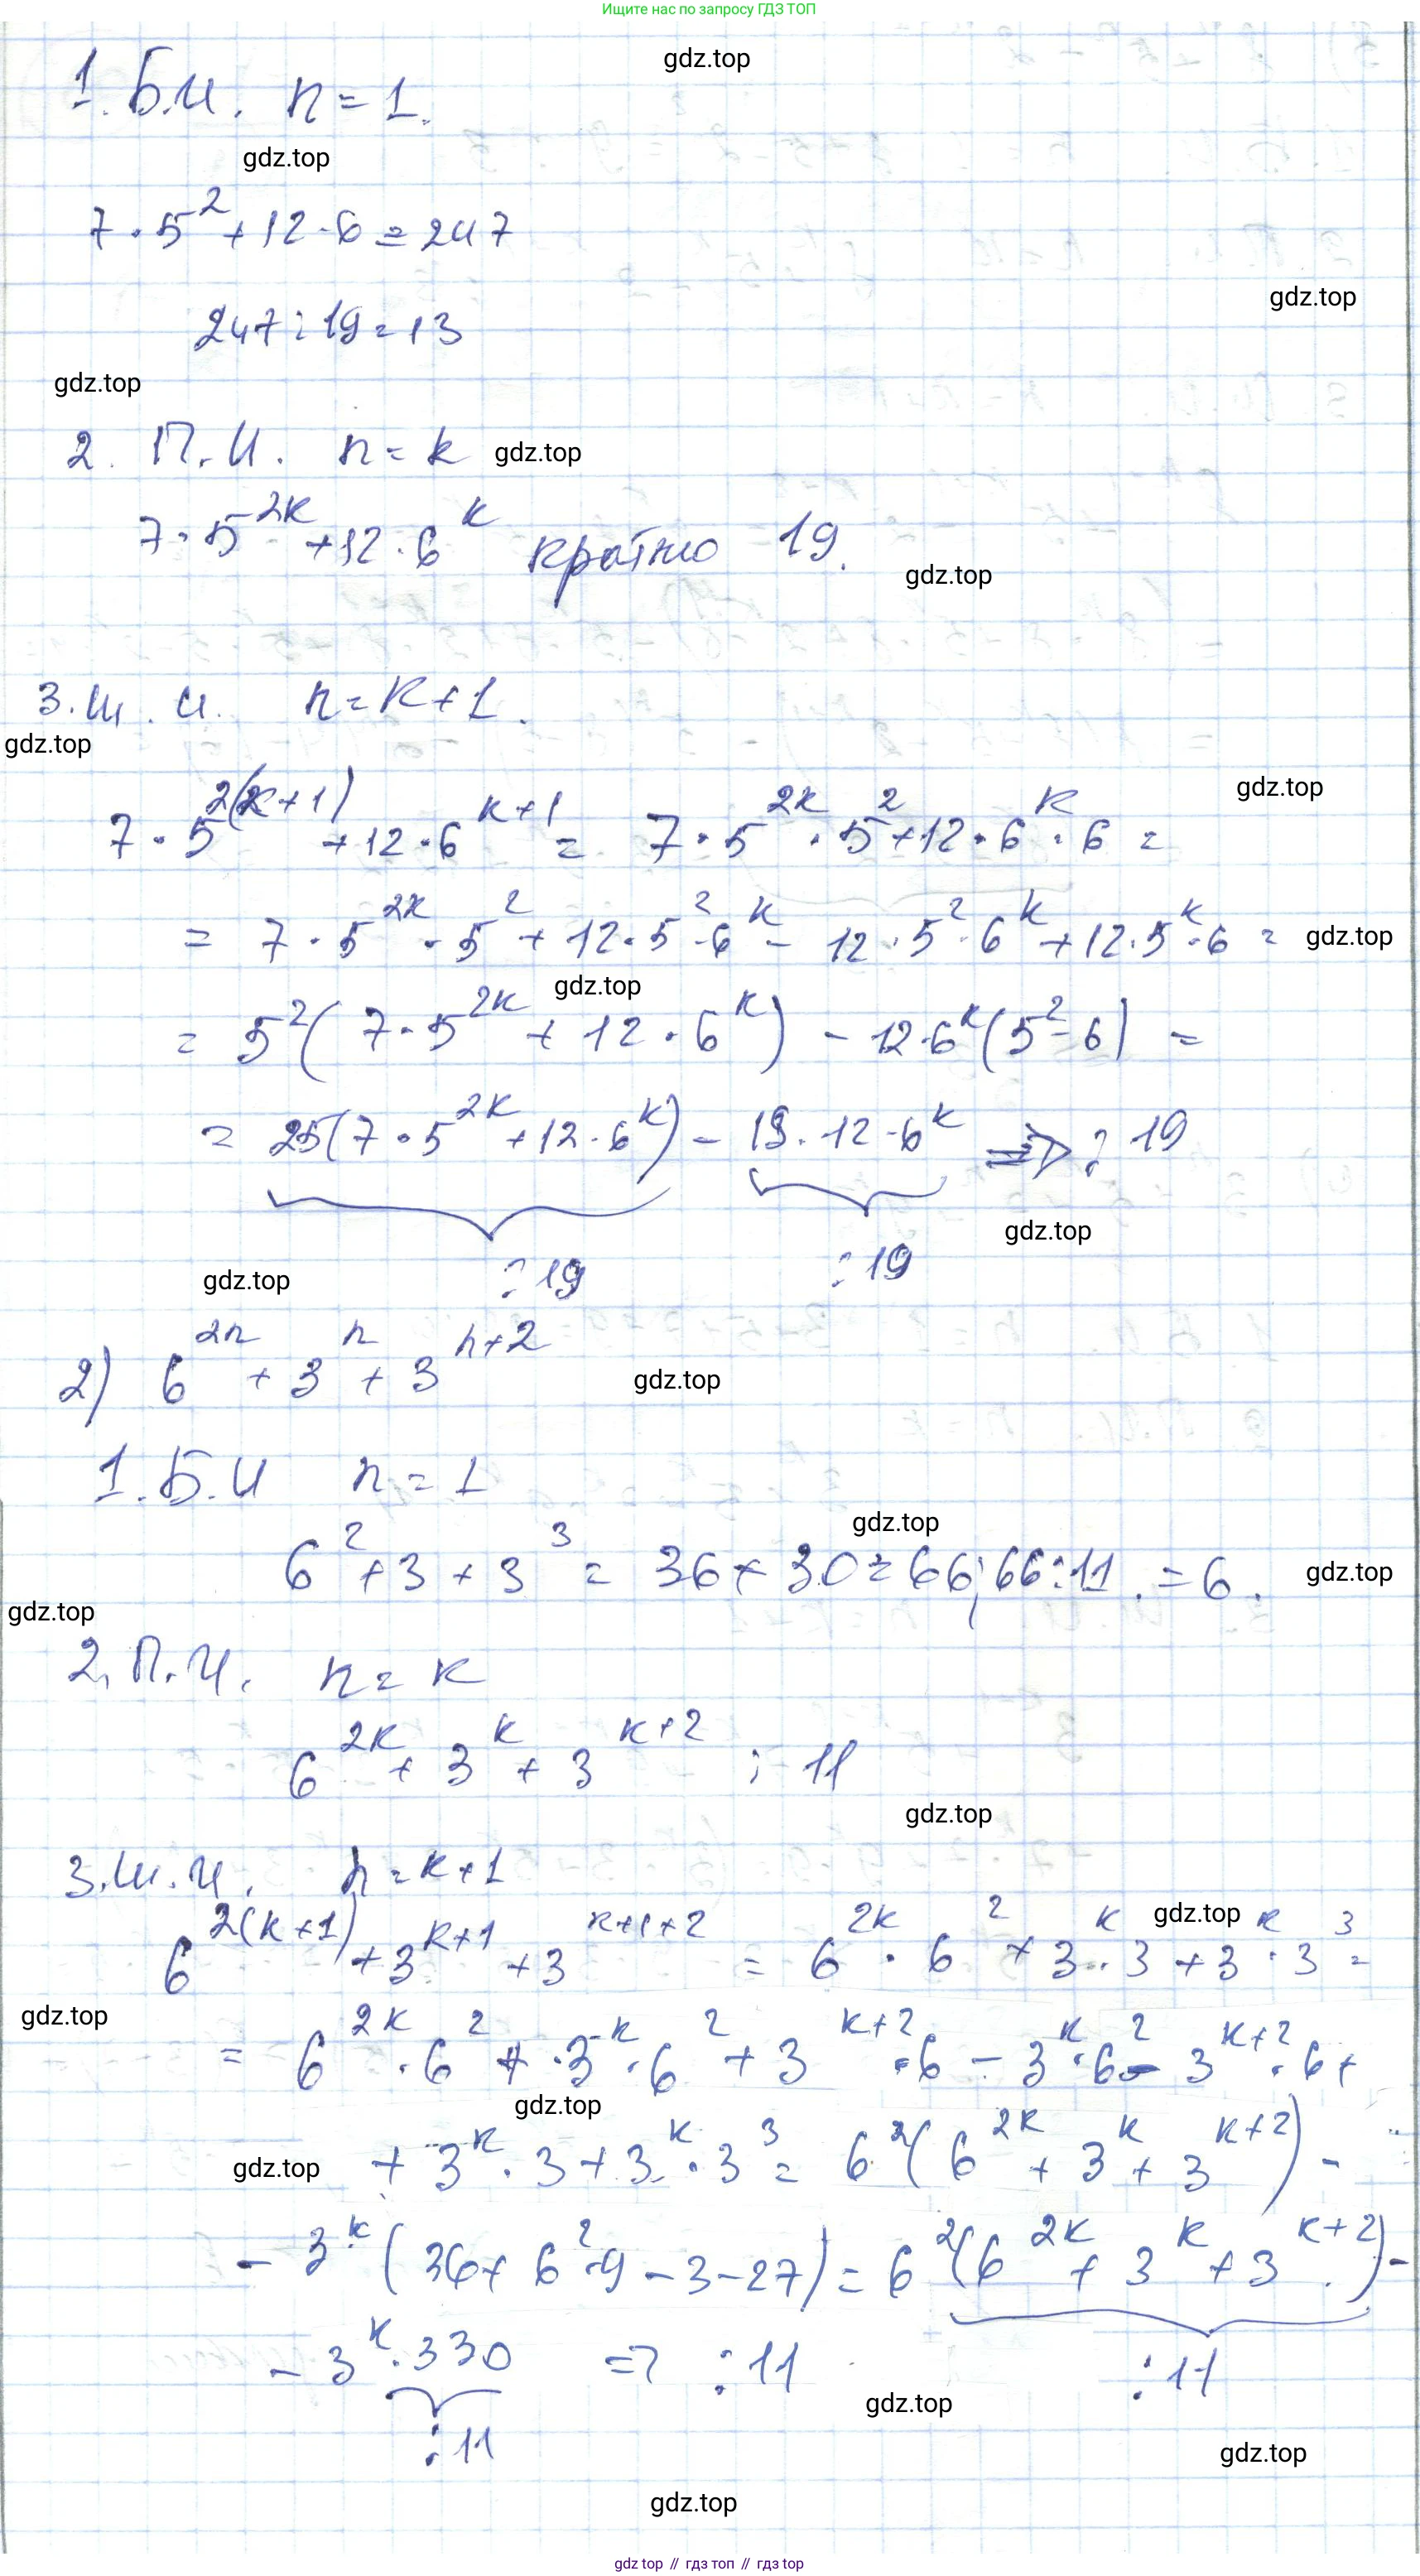 Ищите нас по запросу ГДЗ ТОП
gdz.top
1. Б.И. n = 1.
gdz.top
7 · 5² + 12 · 6 = 247
gdz.top
247 : 19 = 13
gdz.top
2. П. И. n = k gdz.top
7 · 5^{2k} + 12 · 6^k кратно 19.
gdz.top
3. Ш. И. n = k + 1.
gdz.top
gdz.top
7 · 5^{2(k+1)} + 12 · 6^{k+1} = 7 · 5^{2k} · 5² + 12 · 6^k · 6 =
= 7 · 5^{2k} · 5² + 12 · 5² · 6^k - 12 · 5² · 6^k + 12 · 5^k · 6 = gdz.top
gdz.top
= 5² (7 · 5^{2k} + 12 · 6^k) - 12 · 6^k (5² - 6) =
= 25 (7 · 5^{2k} + 12 · 6^k) - 19 · 12 · 6^k => ⋮ 19
gdz.top
⋮ 19 ⋮ 19
gdz.top
2) 6^{2n} + 3^n + 3^{n+2}
gdz.top
1. Б. И n = 1
gdz.top
6² + 3 + 3³ = 36 + 30 = 66; 66 : 11. = 6. gdz.top
gdz.top
2. П. И. n = k
6^{2k} + 3^k + 3^{k+2} ⋮ 11
gdz.top
3. Ш. И. n = k + 1
gdz.top
6^{2(k+1)} + 3^{k+1} + 3^{k+1+2} = 6^{2k} · 6² + 3^k · 3 + 3^k · 3³ =
gdz.top
= 6^{2k} · 6² + · 3^k · 6² + 3^{k+2} · 6 - 3^k · 6² - 3^{k+2} · 6 +
gdz.top
gdz.top + 3^k · 3 + 3^k · 3³ = 6² (6^{2k} + 3^k + 3^{k+2}) -
- 3^k (36 + 6² · 9 - 3 - 27) = 6² (6^{2k} + 3^k + 3^{k+2}) -
- 3^k · 330 => ⋮ 11 ⋮ 11
gdz.top
⋮ 11
gdz.top
gdz.top
gdz top // гдз топ // гдз top